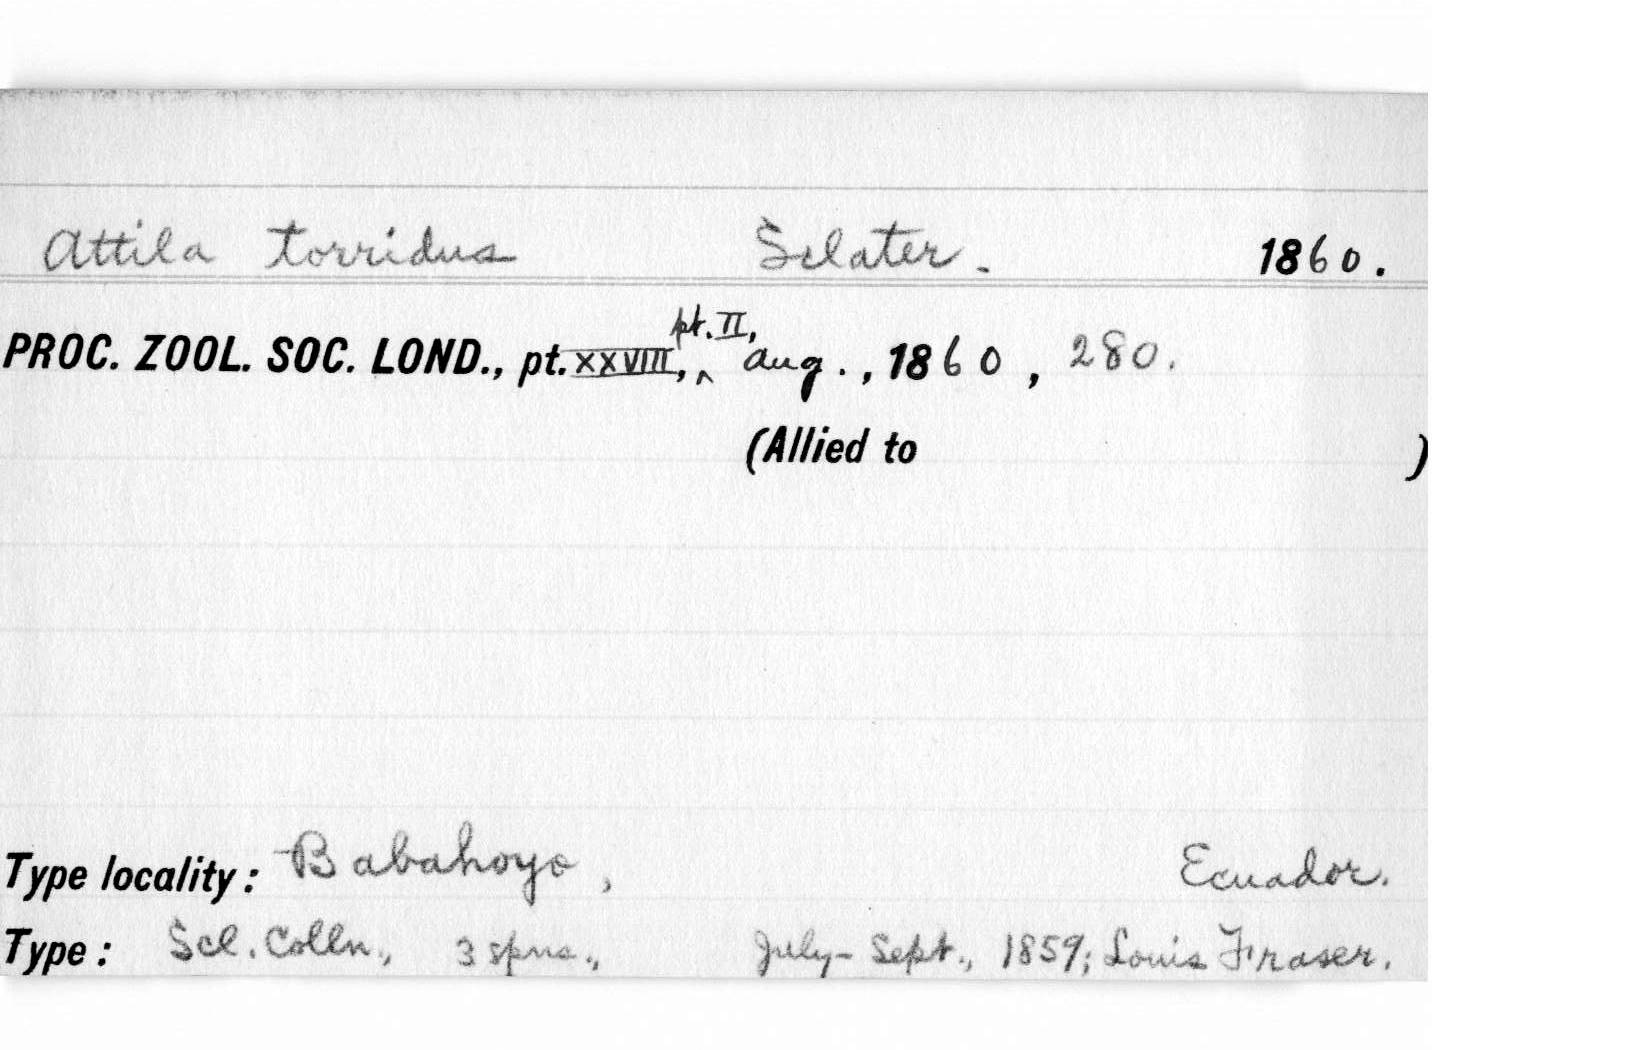 Attila torridus Sclater. 1860.
PROC. ZOOL. SOC. LOND., pt. XXVIII, pt. II, Aug., 1860, 280.
(Allied to )
Type locality: Babahoyo, Ecuador.
Type: Scl. Colln., 3 spms., July-Sept., 1859; Louis Fraser.